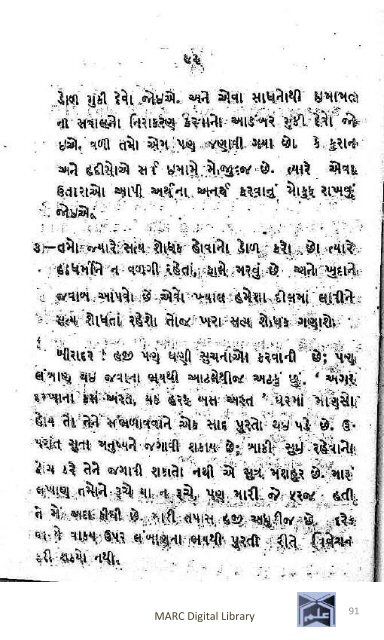 ડોળ મુકી દેવો જોઇએ. અને એવા સાધનોથી ઇમામત
ના સવાલનો નિરાકરણ કરવાનો આડંબર મુકી દેવો જો
ઇએ. વળી તમો એમ પણ જણાવી ગયા છો કે કુરાન
અને હદીસોએ સર્વ ઇમામે મેાજુદજ છે. ત્યારે એવા
ઉતારાઓ આપી અર્થના અનર્થ કરવાનું મોકુફ રાખવું
જોઇએ.
૩—તમો જ્યારે સત્ય શોધક હોવાનો ડોળ કરો છો ત્યારે
હઠધર્મીને ન વળગી રહેતાં, કાલે મરવું છે અને ખુદાને
જવાબ આપવો છે એવો ખ્યાલ હમેશા દીલમાં લાવીને
સત્ય શોધતા રહેશો તોજ ખરા સત્ય શોધક ગણાશો
બીરાદર ! હજી પણ ઘણી સુચનાઓ કરવાની છે; પણ
લંબાણ થઇ જવાના ભયથી આટલેથીજ અટકું છું. ' અગર
કસ અસ્ત, યક હરફ બસ અસ્ત ' ઘરમાં માણસો
હોય તો તેને સંભળાવવાને એક સાદ પુરતો થઇ પડે છે. ઉ-
પરાંત સુતા મનુષ્યને જગાવી શકાય છે; બાકી સુઇ રહેવાનો
ઢોંગ કરે તેને જગાવી શકાતો નથી એ સુત્ર મશહુર છે. મારૂં
લખાણ તમોને રૂચે યા ન રૂચે, પણ મારી જે ફરજ હતી
તે મેં અદા કીધી છે. મારી તપાસ હજી અધુરીજ છે. દરેક
વાક્ય ઉપર લંબાણના ભયથી પુરતી રીતે વિવેચન
કરી શક્યો નથી.
MARC Digital Library
91